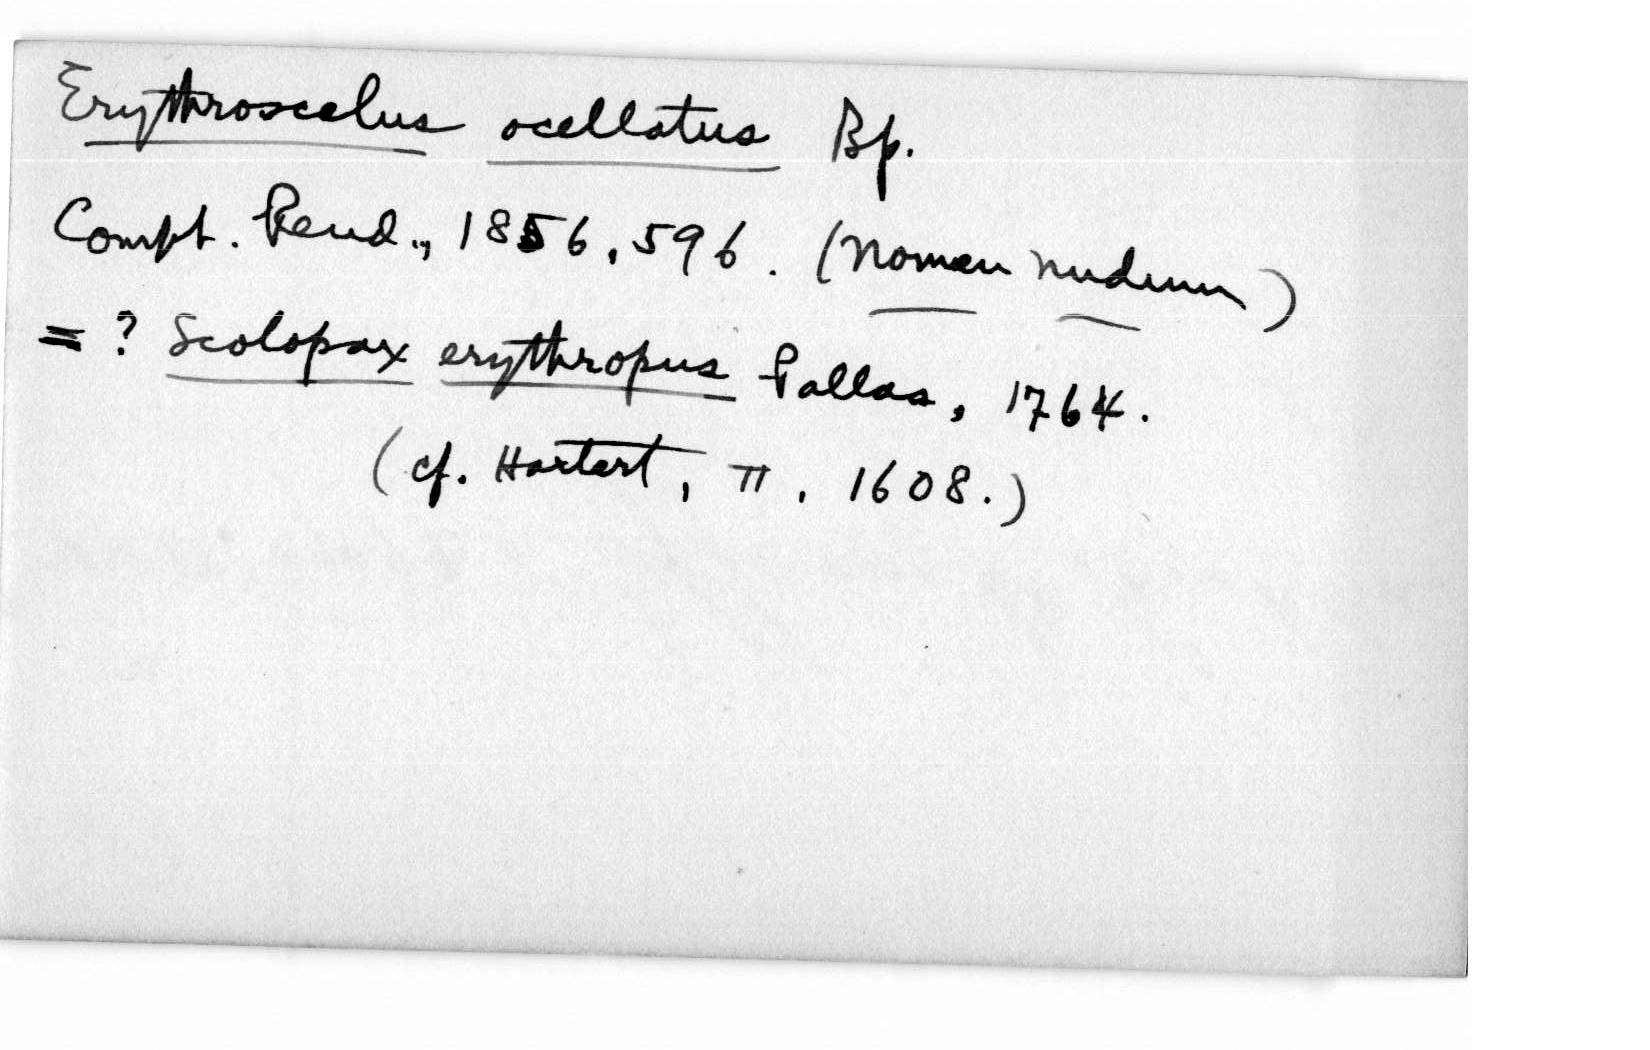 Erythroscelus ocellatus Bp.
Compt. Rend., 1856, 596. (Nomen nudum)
= ? Scolopax erythropus Pallas, 1764.
(cf. Hartert, II, 1608.)